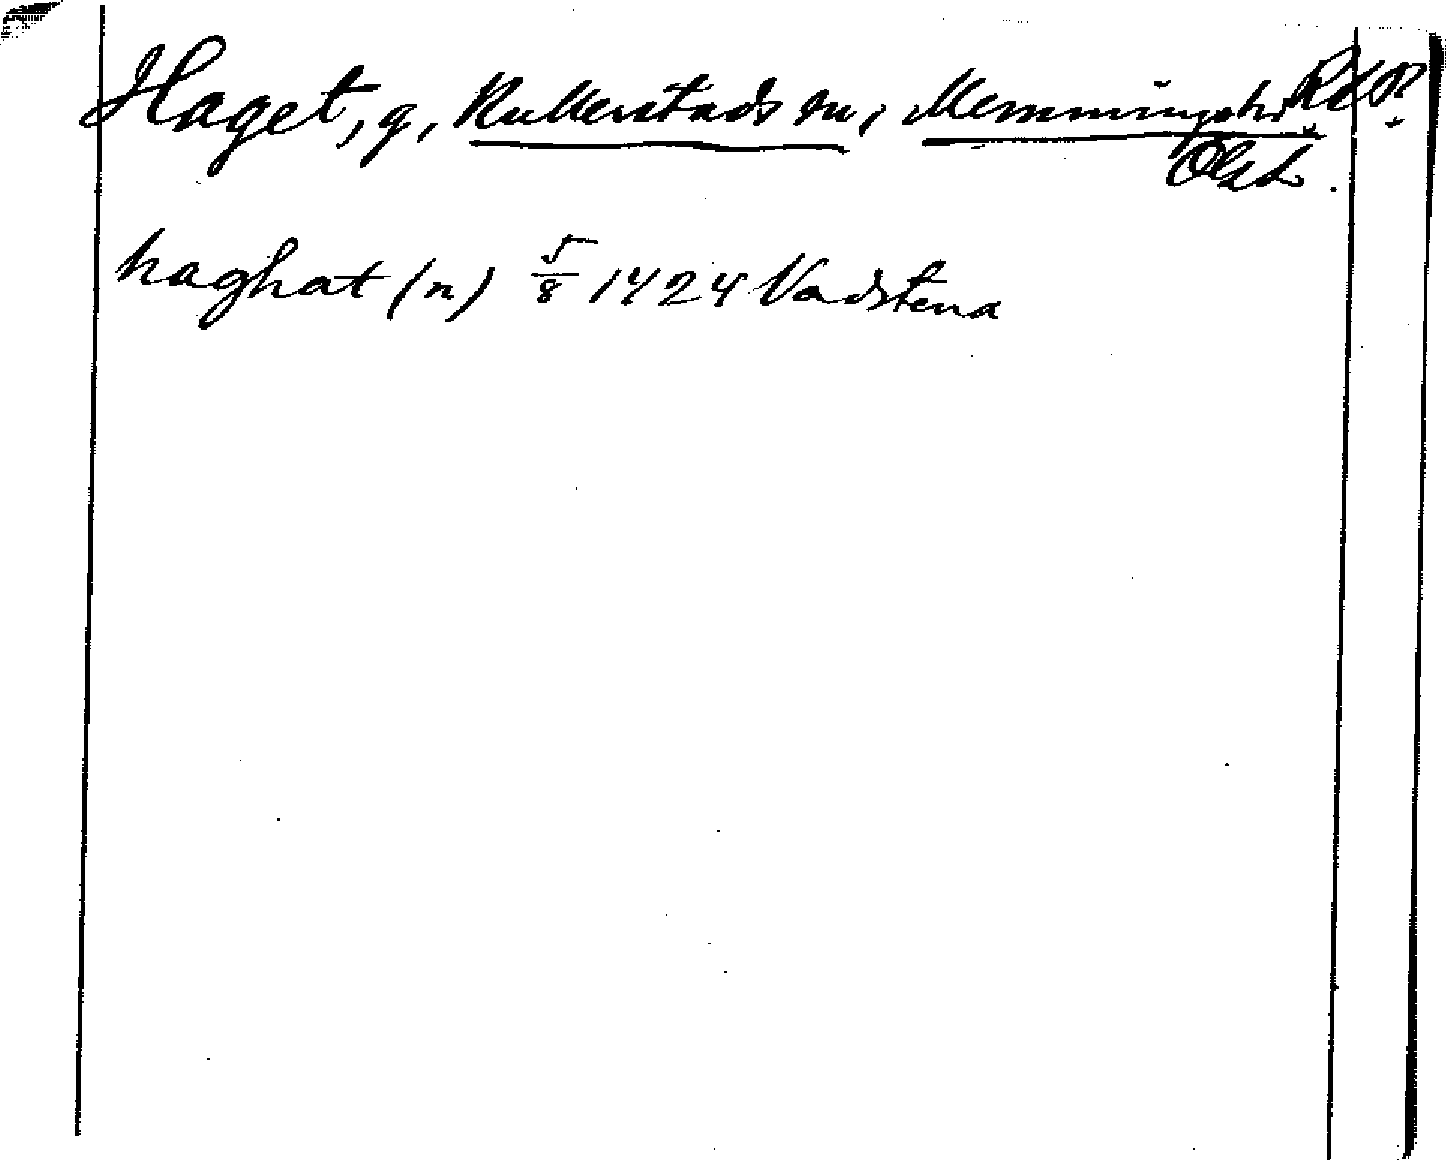 Haget, g, Kullerstads sn, Memmings hd
Ögtl.
haghat (n) 5/8 1424 Vadstena